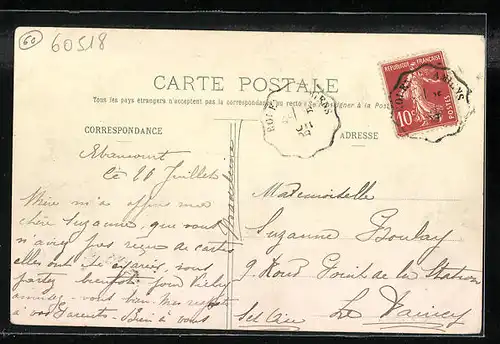 60
60518
CARTE POSTALE
Tous les pays étrangers n'acceptent pas la correspondance au recto à la Poste
CORRESPONDANCE
ADRESSE
RÉPUBLIQUE FRANÇAISE
POSTES
10c
AMIENS
AMIENS
Abancourt
Ce 20 Juillet
Mère m'a
chère Suzanne, que vous
n'aviez pas reçu de cartes
elles ont été vous
partez bientôt pour Vichy
vous bien. Mes respects
à vos Parents. Bien à vous
Madeleine
Mademoiselle
Suzanne Boulay
9 Rond Point de la Station
Le Raincy